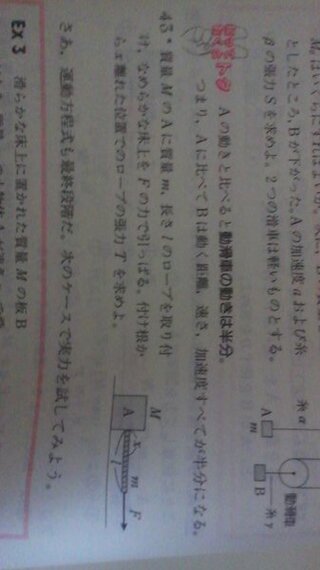 M₁はいくらにすればよいか。
としたところ，Bが下がった。Aの加速度aおよび糸
βの張力Sを求めよ。2つの滑車は軽いものとする。
糸α
動滑車
A
m
B
糸γ
Aの動きと比べると動滑車の動きは半分。
つまり，Aに比べてBは動く距離，速さ，加速度すべてが半分になる。
43* 質量MのAに質量m，長さlのロープを取り付
け，なめらかな床上をFの力で引っぱる。付け根か
らx離れた位置でのロープの張力Tを求めよ。
M
A
x
m
l
F
さあ，運動方程式も最終段階だ。次のケースで実力を試してみよう。
EX 3 滑らかな床上に置かれた質量Mの板B